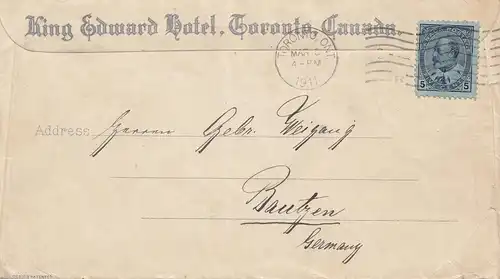 King Edward Hotel, Toronto, Canada.
TORONTO, ONT.
MAR
4-PM
1911
5 5
Address Herren Gebr. Weigang
Bautzen
Germany